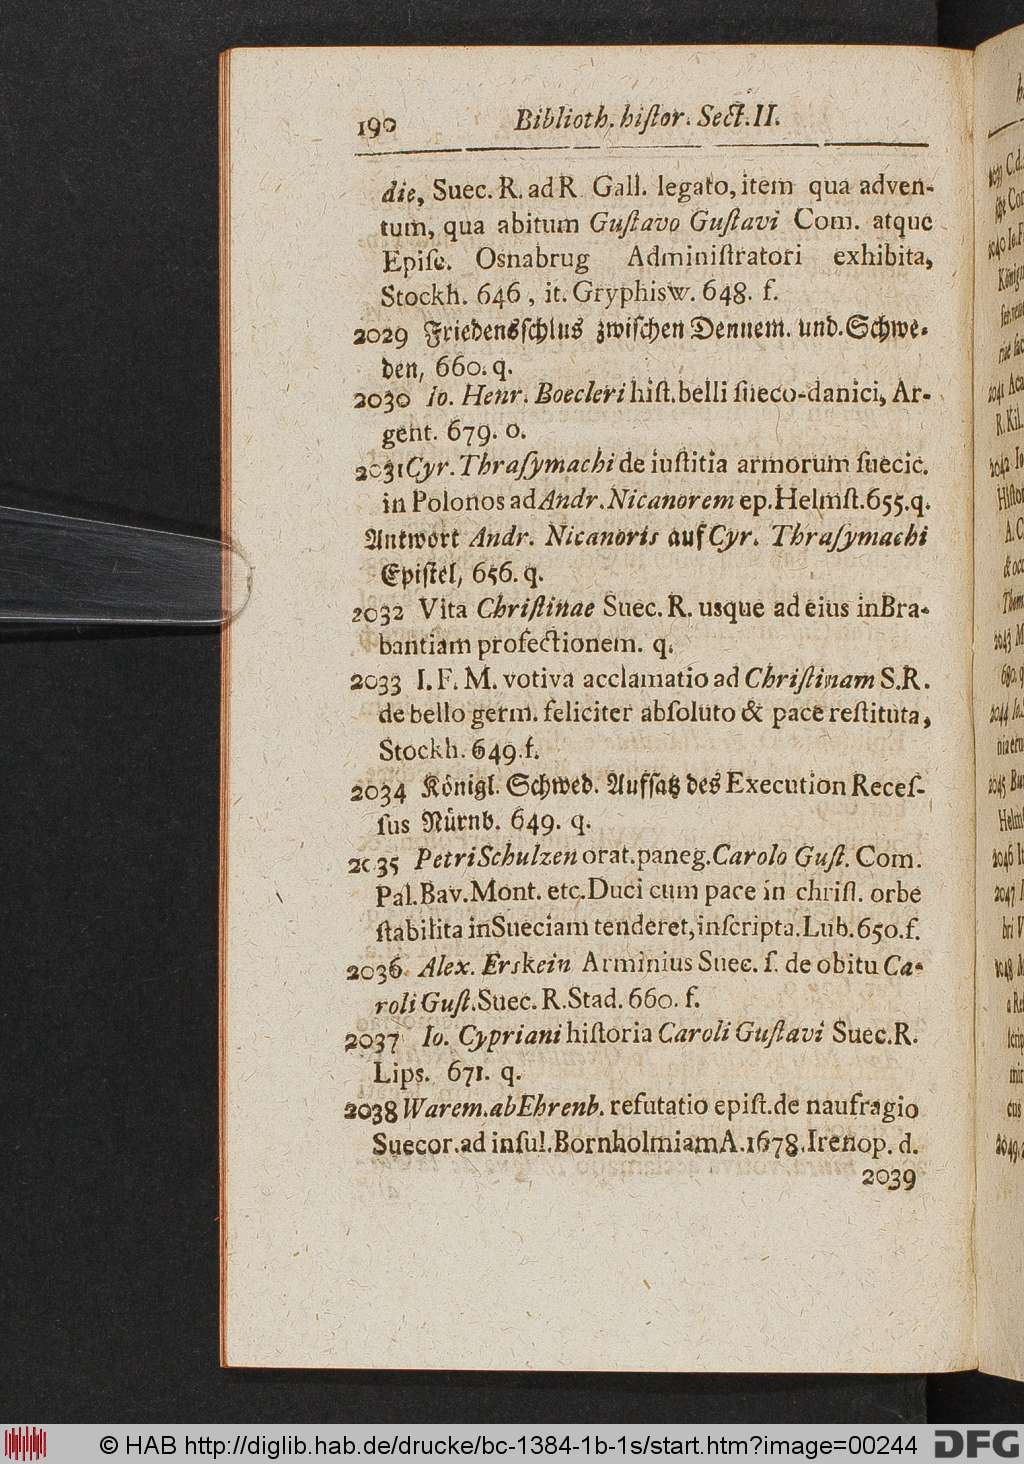 190 Biblioth. hiſtor. Sect. II.
die, Suec. R. ad R Gall. legato, item qua adven-
tum, qua abitum Guſtavo Guſtavi Com. atque
Epiſc. Osnabrug Adminiſtratori exhibita,
Stockh. 646, it. Gryphisw. 648. f.
2029 Friedensſchlus zwiſchen Dennem. und. Schwe-
den, 660. q.
2030 Io. Henr. Boecleri hiſt. belli ſueco-danici, Ar-
gent. 679. o.
2031 Cyr. Thraſymachi de iuſtitia armorum ſuecic.
in Polonos ad Andr. Nicanorem ep. Helmſt. 655. q.
Antwort Andr. Nicanoris auf Cyr. Thraſymachi
Epiſtel, 656. q.
2032 Vita Chriſtinae Suec. R. usque ad eius in Bra-
bantiam profectionem. q.
2033 I. F. M. votiva acclamatio ad Chriſtinam S. R.
de bello germ. feliciter abſoluto & pace reſtituta,
Stockh. 649. f.
2034 Königl. Schwed. Aufſatz des Execution Receſ-
ſus Nürnb. 649. q.
2035 Petri Schulzen orat. paneg. Carolo Guſt. Com.
Pal. Bav. Mont. etc. Duci cum pace in chriſt. orbe
ſtabilita in Sueciam tenderet, inſcripta. Lub. 650. f.
2036 Alex. Erskein Arminius Suec. ſ. de obitu Ca-
roli Guſt. Suec. R. Stad. 660. f.
2037 Io. Cypriani hiſtoria Caroli Guſtavi Suec. R.
Lips. 671. q.
2038 Warem. ab Ehrenb. refutatio epiſt. de naufragio
Suecor. ad inſul. Bornholmiam A. 1678. Irenop. d.
2039
© HAB http://diglib.hab.de/drucke/bc-1384-1b-1s/start.htm?image=00244 DFG